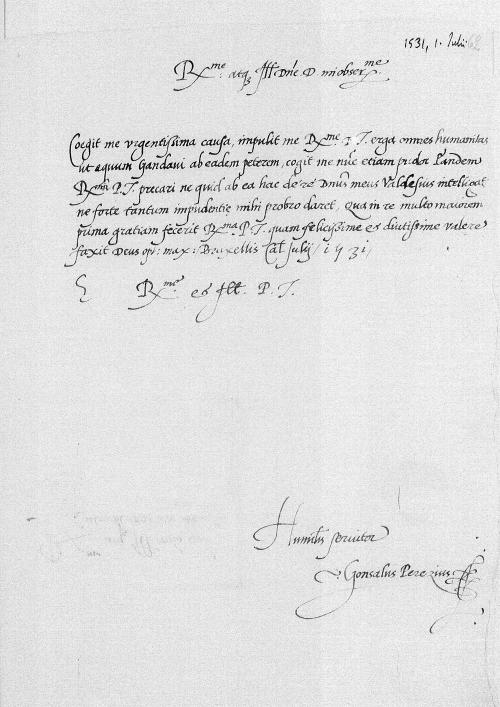 1531, 1. Julii
Rx.me atq; Ill. Dn̄e D. mi obser.me
Coegit me vrgentissima causa, impulit me Rx.me P. T. erga omnes humanitas
ut equum Gandaui ab eadem peterem, cogit me nūc etiam pudor eandem
Rx.am P. T. precari ne quid ab ea hac de re Dnūs meus Valdesius intelligat
ne forte tantum impudentię mihi probro daret, Qua in re multo maiorem
gratiam fecerit Rx.ma P. T. quam felicissime et diutissime valere
faxit Deus opt: max: Bruxellis Cal. Julij 1531
E. Rx.me et Ill. P. T.
Humilis seruitor
Gonsalus Perezius